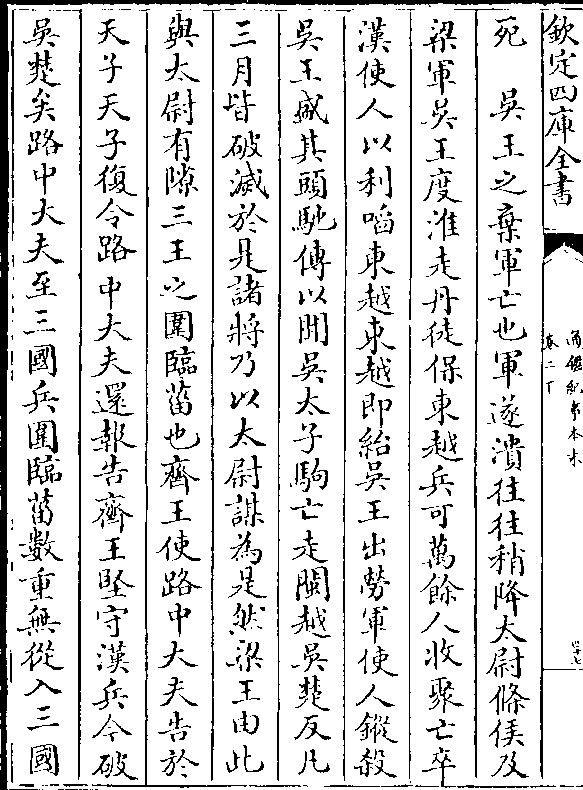 欽定四庫全書
通鑑紀事本末
卷二下
死　吳王之棄軍亡也軍遂潰往往稍降太尉條侯及
梁軍吳王度淮走丹徒保東越兵可萬餘人收聚亡卒
漢使人以利啗東越東越即紿吳王出勞軍使人鏦殺
吳王盛其頭馳傳以聞吳太子駒亡走閩越吳楚反凡
三月皆破滅於是諸將乃以太尉謀為是然梁王由此
與太尉有隙三王之圍臨菑也齊王使路中大夫告於
天子天子復令路中大夫還報告齊王堅守漢兵今破
吳楚矣路中大夫至三國兵圍臨菑數重無從入三國